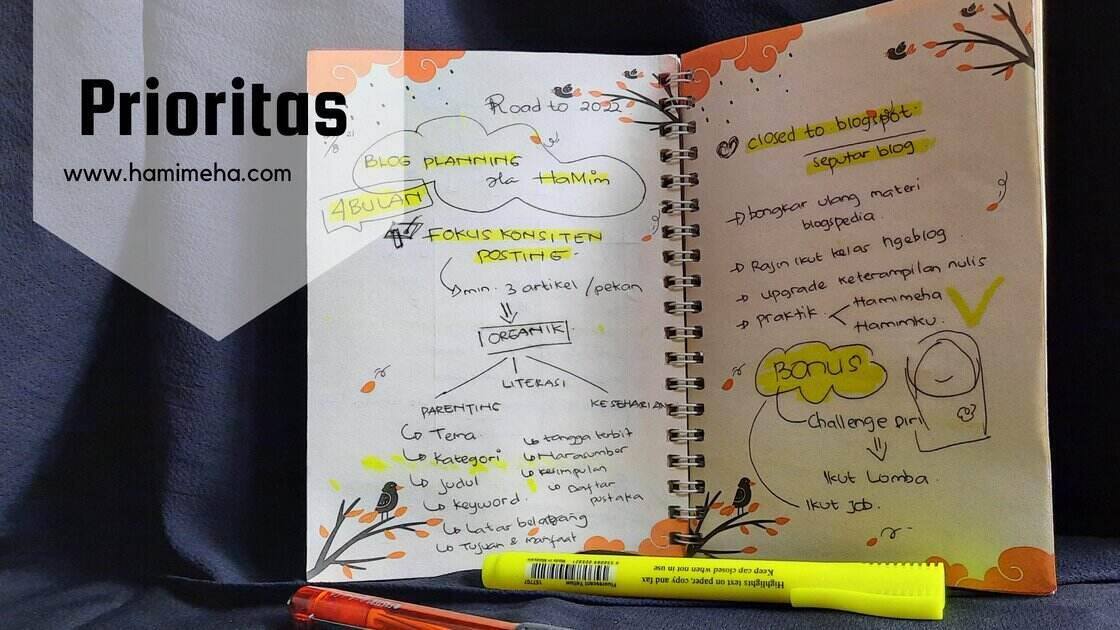 Prioritas
www.hamimeha.com
Road to 2022
BLOG PLANNING
ala HaMim
4 BULAN
FOKUS KONSITEN
POSTING
min. 3 artikel / pekan
ORGANIK
LITERASI
PARENTING
KESEHARIAN
Tema
Kategori
Judul
Keyword
Latar belakang
Tujuan & manfaat
tangga terbit
Narasumber
Kesimpulan
Daftar
pustaka
closed to blogspot
seputar blog
bongkar ulang materi
blogspedia
Rajin Ikut kelas Ngeblog
upgrade keterampilan nulis
praktik
Hamimeha
Hamimku
Bonus
Challenge Diri
Ikut Lomba
Ikut Job
Highlights text on paper, copy and fax
Keep cap closed when not in use
Fluorescent Yellow